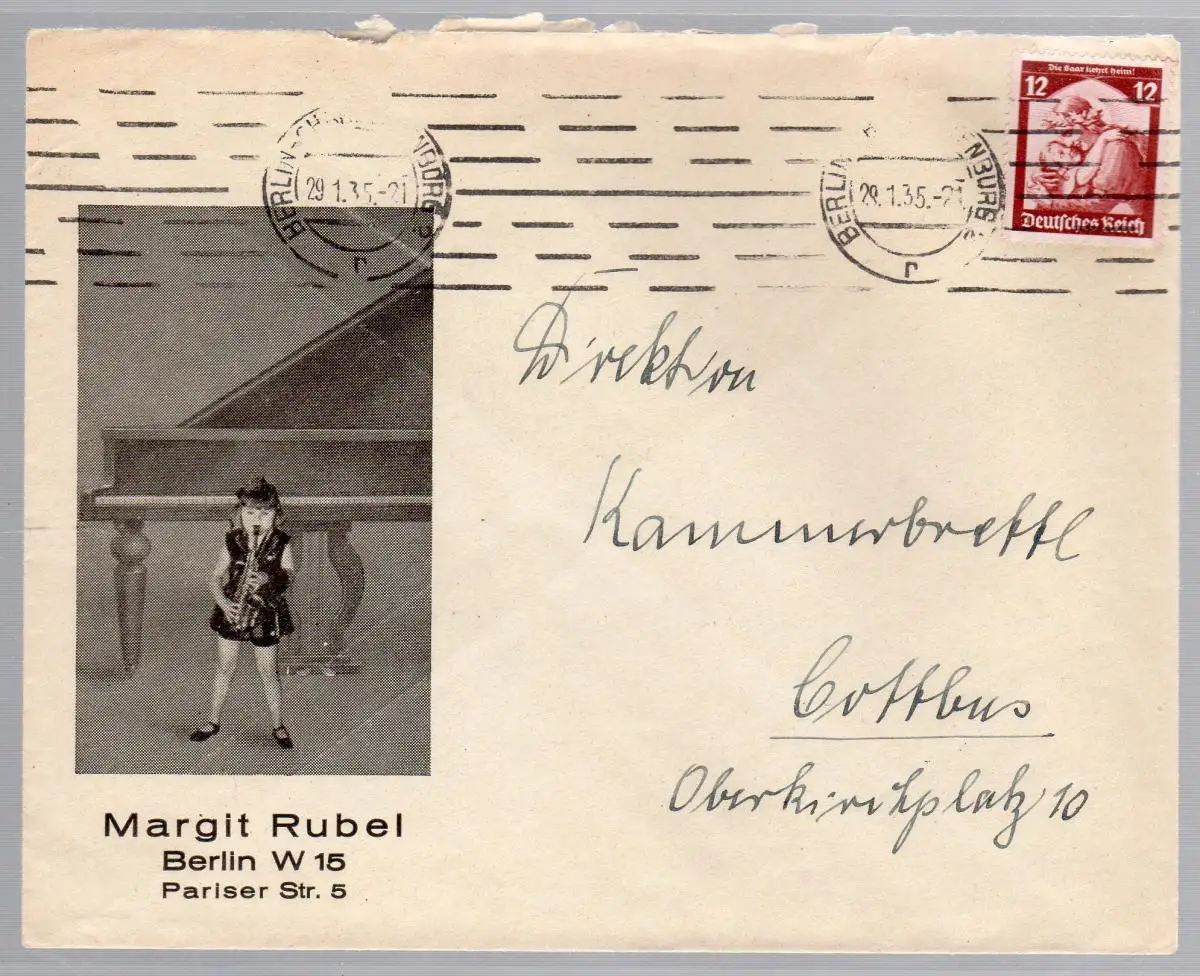 Die Saar kehrt heim!
12 12
Deutsches Reich
29.1.35.-21
r
29.1.35.-21
r
Direktion
Kammerbrettl
Cottbus
Oberkirchplatz 10
Margit Rubel
Berlin W 15
Pariser Str. 5